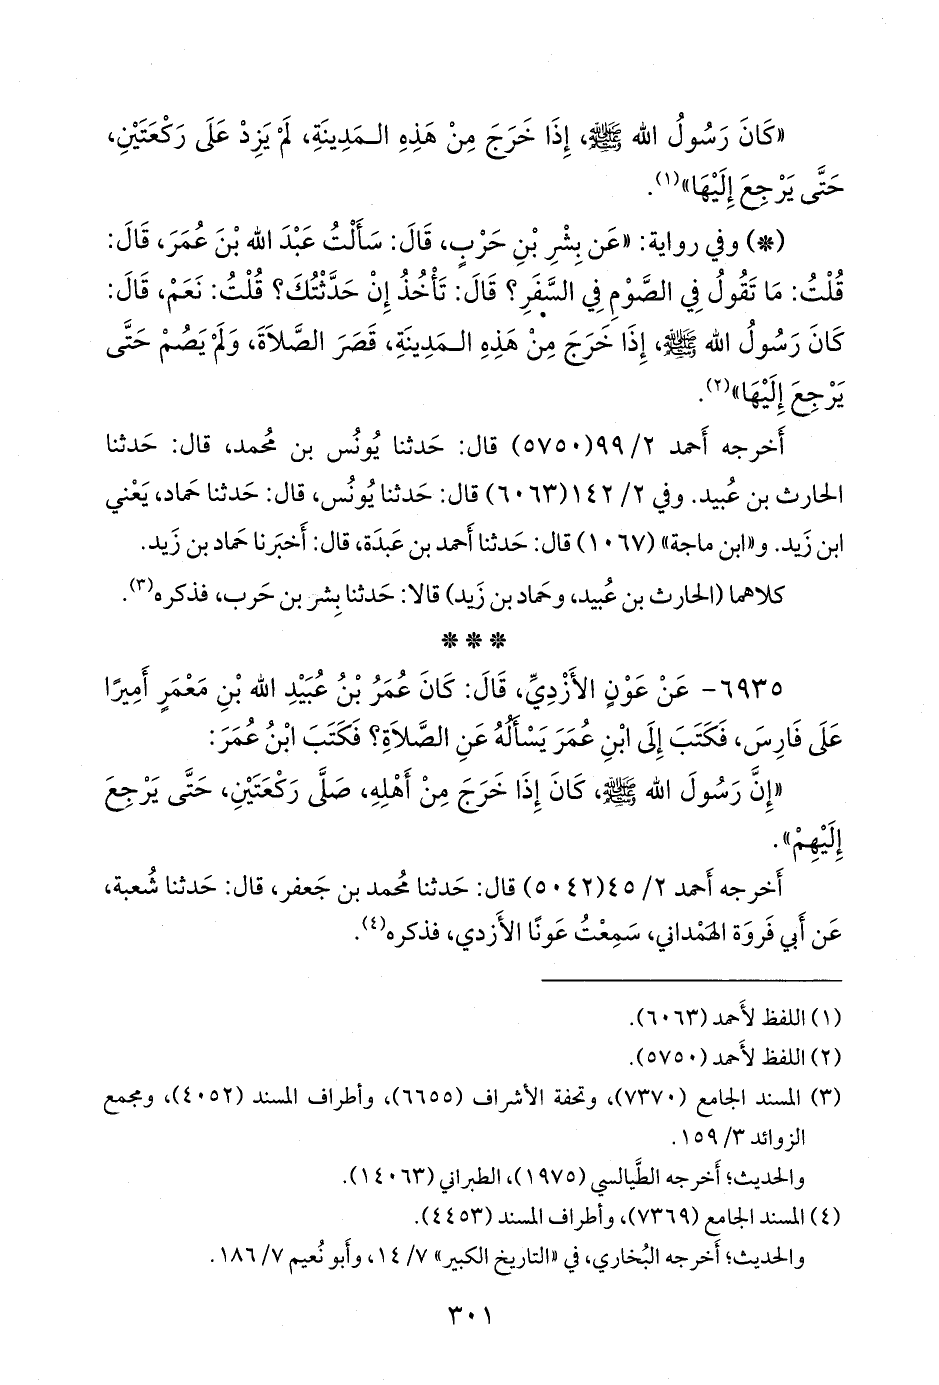 «كَانَ رَسُولُ الله ﷺ، إِذَا خَرَجَ مِنْ هَذِهِ الـمَدِينَةِ، لَمْ يَزِدْ عَلَى رَكْعَتَيْنِ،
حَتَّى يَرْجِعَ إِلَيْهَا»(١).
(*) وفي رواية: «عَن بِشْرِ بْنِ حَرْبٍ، قَالَ: سَأَلْتُ عَبْدَ الله بْنَ عُمَرَ، قَالَ:
قُلْتُ: مَا تَقُولُ فِي الصَّوْمِ فِي السَّفَرِ؟ قَالَ: تَأْخُذُ إِنْ حَدَّثْتُكَ؟ قُلْتُ: نَعَمْ، قَالَ:
كَانَ رَسُولُ الله ﷺ، إِذَا خَرَجَ مِنْ هَذِهِ الـمَدِينَةِ، قَصَرَ الصَّلاَةَ، وَلَمْ يَصُمْ حَتَّى
يَرْجِعَ إِلَيْهَا»(٢).
أَخرجه أَحمد ٢/ ٩٩(٥٧٥٠) قال: حَدثنا يُونُس بن مُحمد، قال: حَدثنا
الحارث بن عُبيد. وفي ٢/ ١٤٢(٦٠٦٣) قال: حَدثنا يُونُس، قال: حَدثنا حَماد، يَعْني
ابن زَيد. و«ابن ماجة» (١٠٦٧) قال: حَدثنا أَحمد بن عَبدَة، قال: أَخبَرنا حَماد بن زَيد.
كلاهما (الحارث بن عُبيد، وحَماد بن زَيد) قالا: حَدثنا بِشر بن حَرب، فذكره(٣).
* * *
٦٩٣٥- عَنْ عَوْنٍ الأَزْدِيِّ، قَالَ: كَانَ عُمَرُ بْنُ عُبَيْدِ الله بْنِ مَعْمَرٍ أَمِيرًا
عَلَى فَارِسَ، فَكَتَبَ إِلَى ابْنِ عُمَرَ يَسْأَلُهُ عَنِ الصَّلاَةِ؟ فَكَتَبَ ابْنُ عُمَرَ:
«إِنَّ رَسُولَ الله ﷺ، كَانَ إِذَا خَرَجَ مِنْ أَهْلِهِ، صَلَّى رَكْعَتَيْنِ، حَتَّى يَرْجِعَ
إِلَيْهِمْ».
أَخرجه أَحمد ٢/ ٤٥(٥٠٤٢) قال: حَدثنا مُحمد بن جَعفر، قال: حَدثنا شُعبة،
عَن أَبي فَروَة الهَمْداني، سَمِعْتُ عَونًا الأَزدي، فذكره(٤).
(١) اللفظ لأَحمد (٦٠٦٣).
(٢) اللفظ لأَحمد (٥٧٥٠).
(٣) المسند الجامع (٧٣٧٠)، وتحفة الأشراف (٦٦٥٥)، وأطراف المسند (٤٠٥٢)، ومجمع
الزوائد ٣/ ١٥٩.
والحديث؛ أَخرجه الطَّيالسي (١٩٧٥)، الطبراني (١٤٠٦٣).
(٤) المسند الجامع (٧٣٦٩)، وأطراف المسند (٤٤٥٣).
والحديث؛ أَخرجه البُخاري، في «التاريخ الكبير» ٧/ ١٤، وأَبو نُعيم ٧/ ١٨٦.
٣٠١